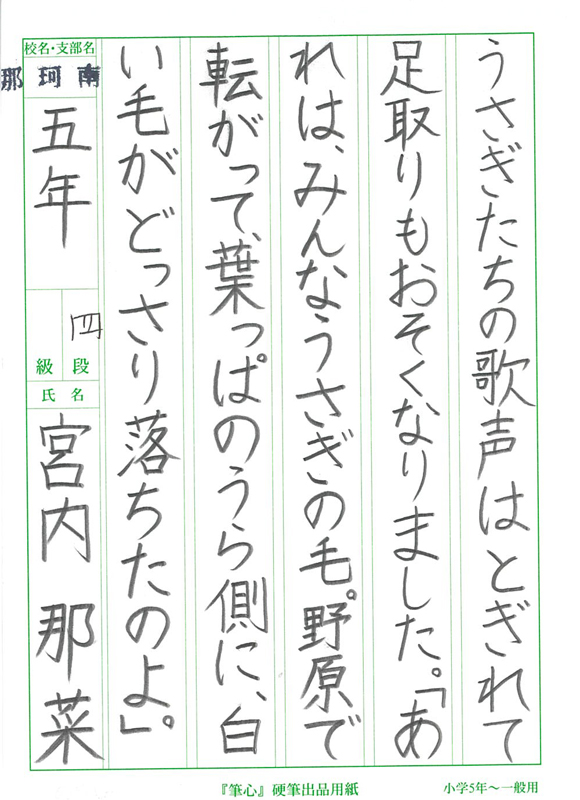 うさぎたちの歌声はとぎれて
足取りもおそくなりました。「あ
れは、みんなうさぎの毛。野原で
転がって、葉っぱのうら側に、白
い毛がどっさり落ちたのよ」。
校名・支部名
那珂南
五年
四
級 段
氏名
宮内 那菜
『筆心』硬筆出品用紙
小学5年～一般用